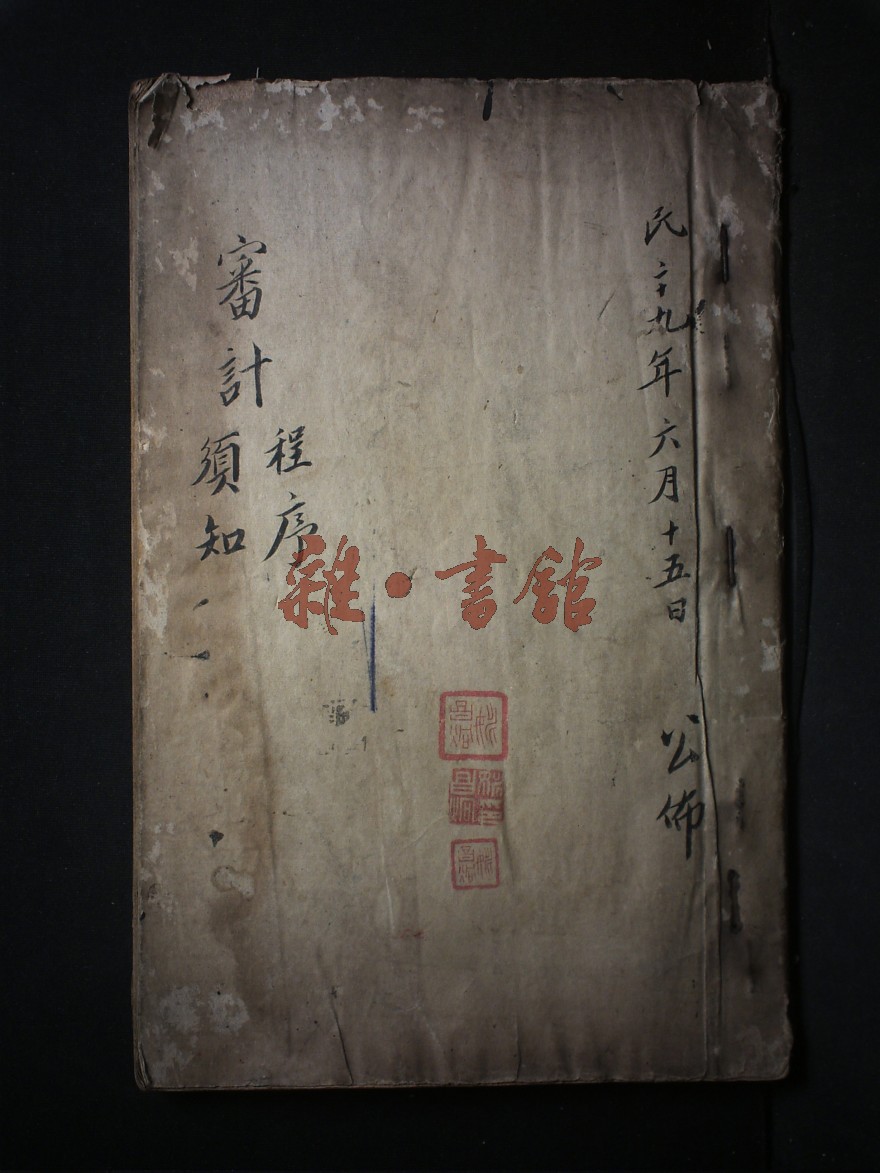 民二十九年六月十五日 公佈
審計
程序
須知
雜·書館